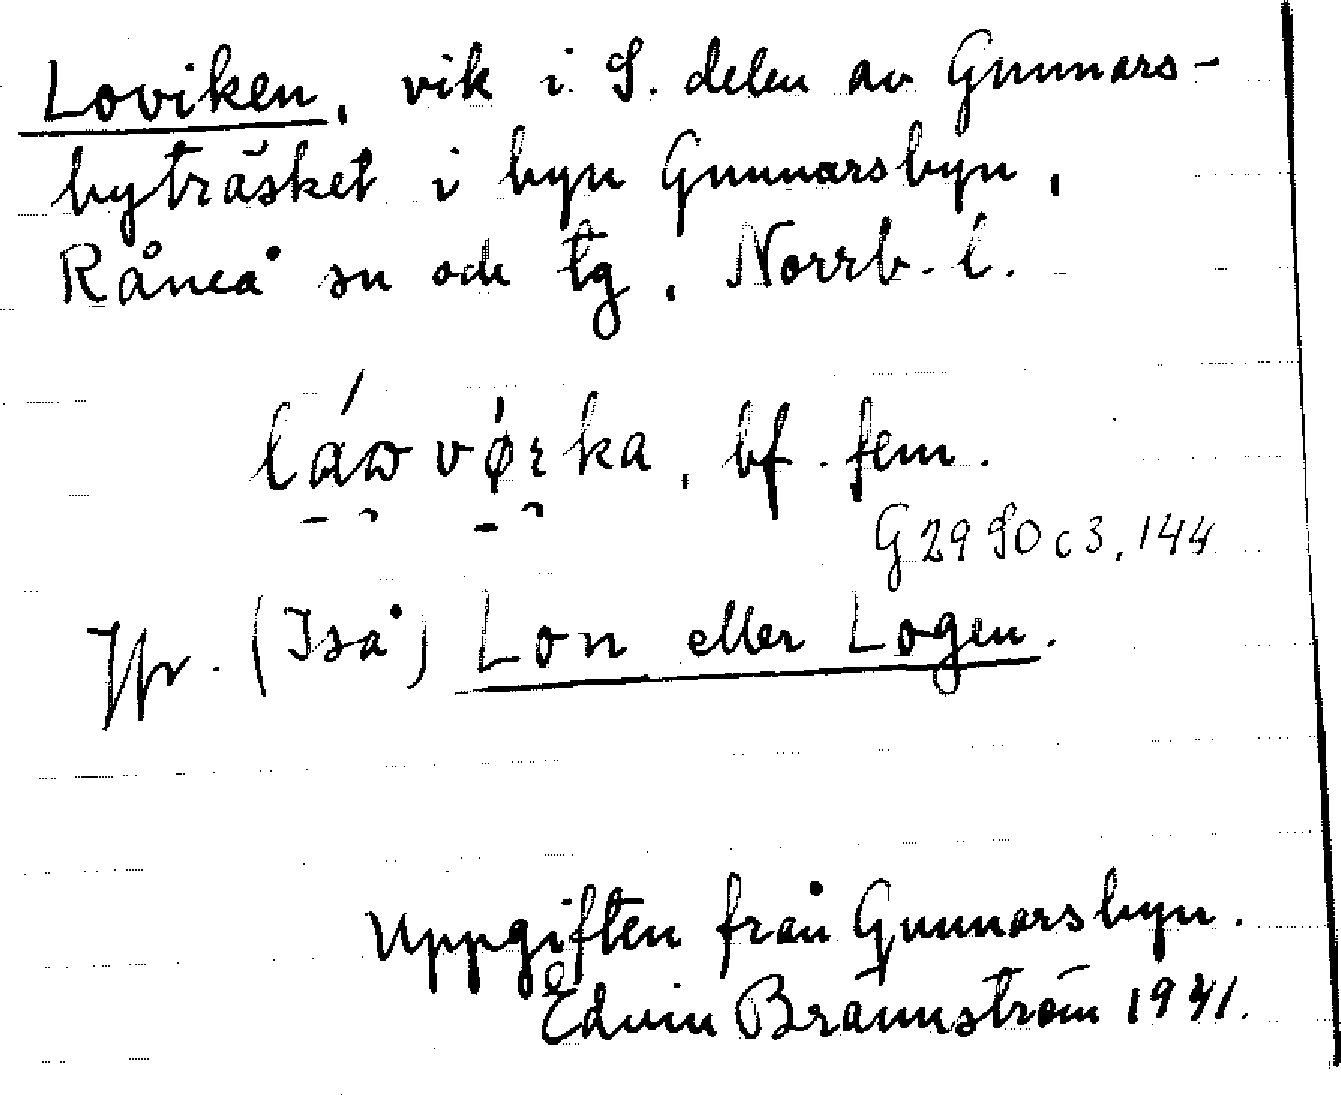 Loviken, vik i S. delen av Gunnars-
byträsket i byn Gunnarsbyn,
Råneå sn och tg, Norrb. l.
bf. fem.
G 29 SO c3, 144
Jfr. (Iså) Lon eller Logen.
Uppgiften från Gunnarsbyn.
Edvin Brännström 1941.